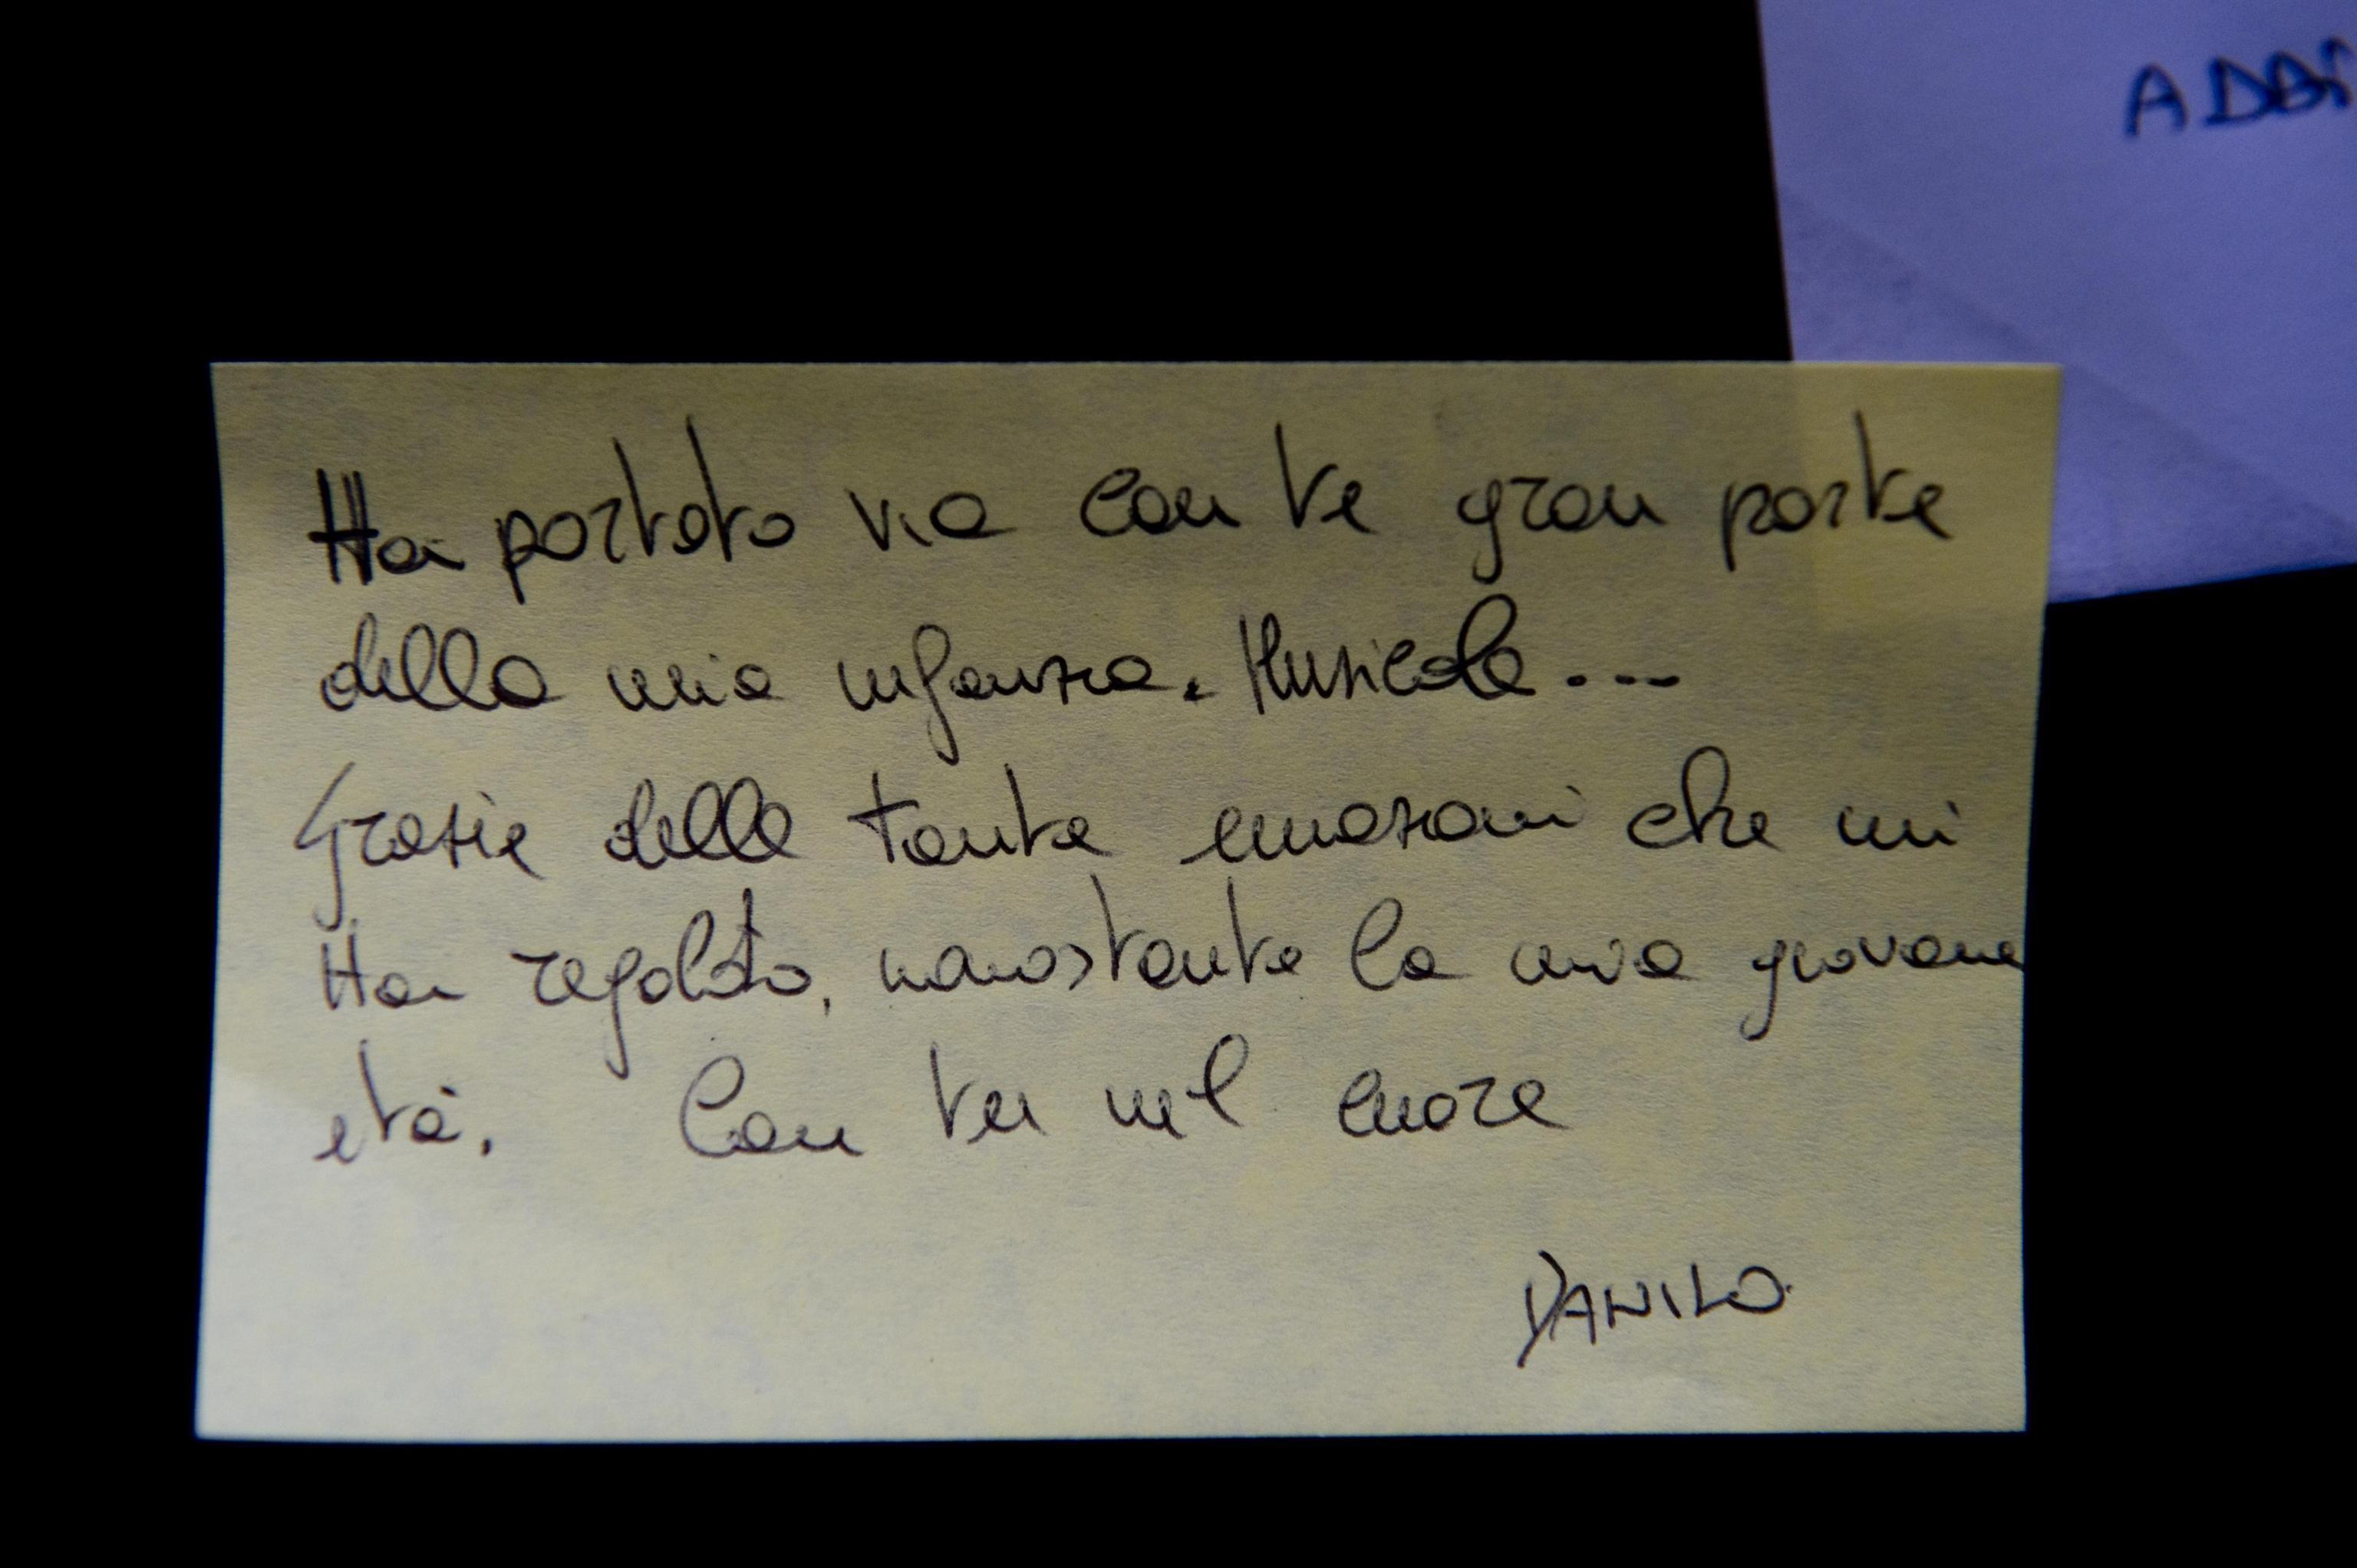 ADDI
Hai portato via con te gran parte
della mia infanzia. Musicale...
Grazie delle tante emozioni che mi
Hai regalato, nonostante la mia giovane
età. Con te nel cuore
DANILO